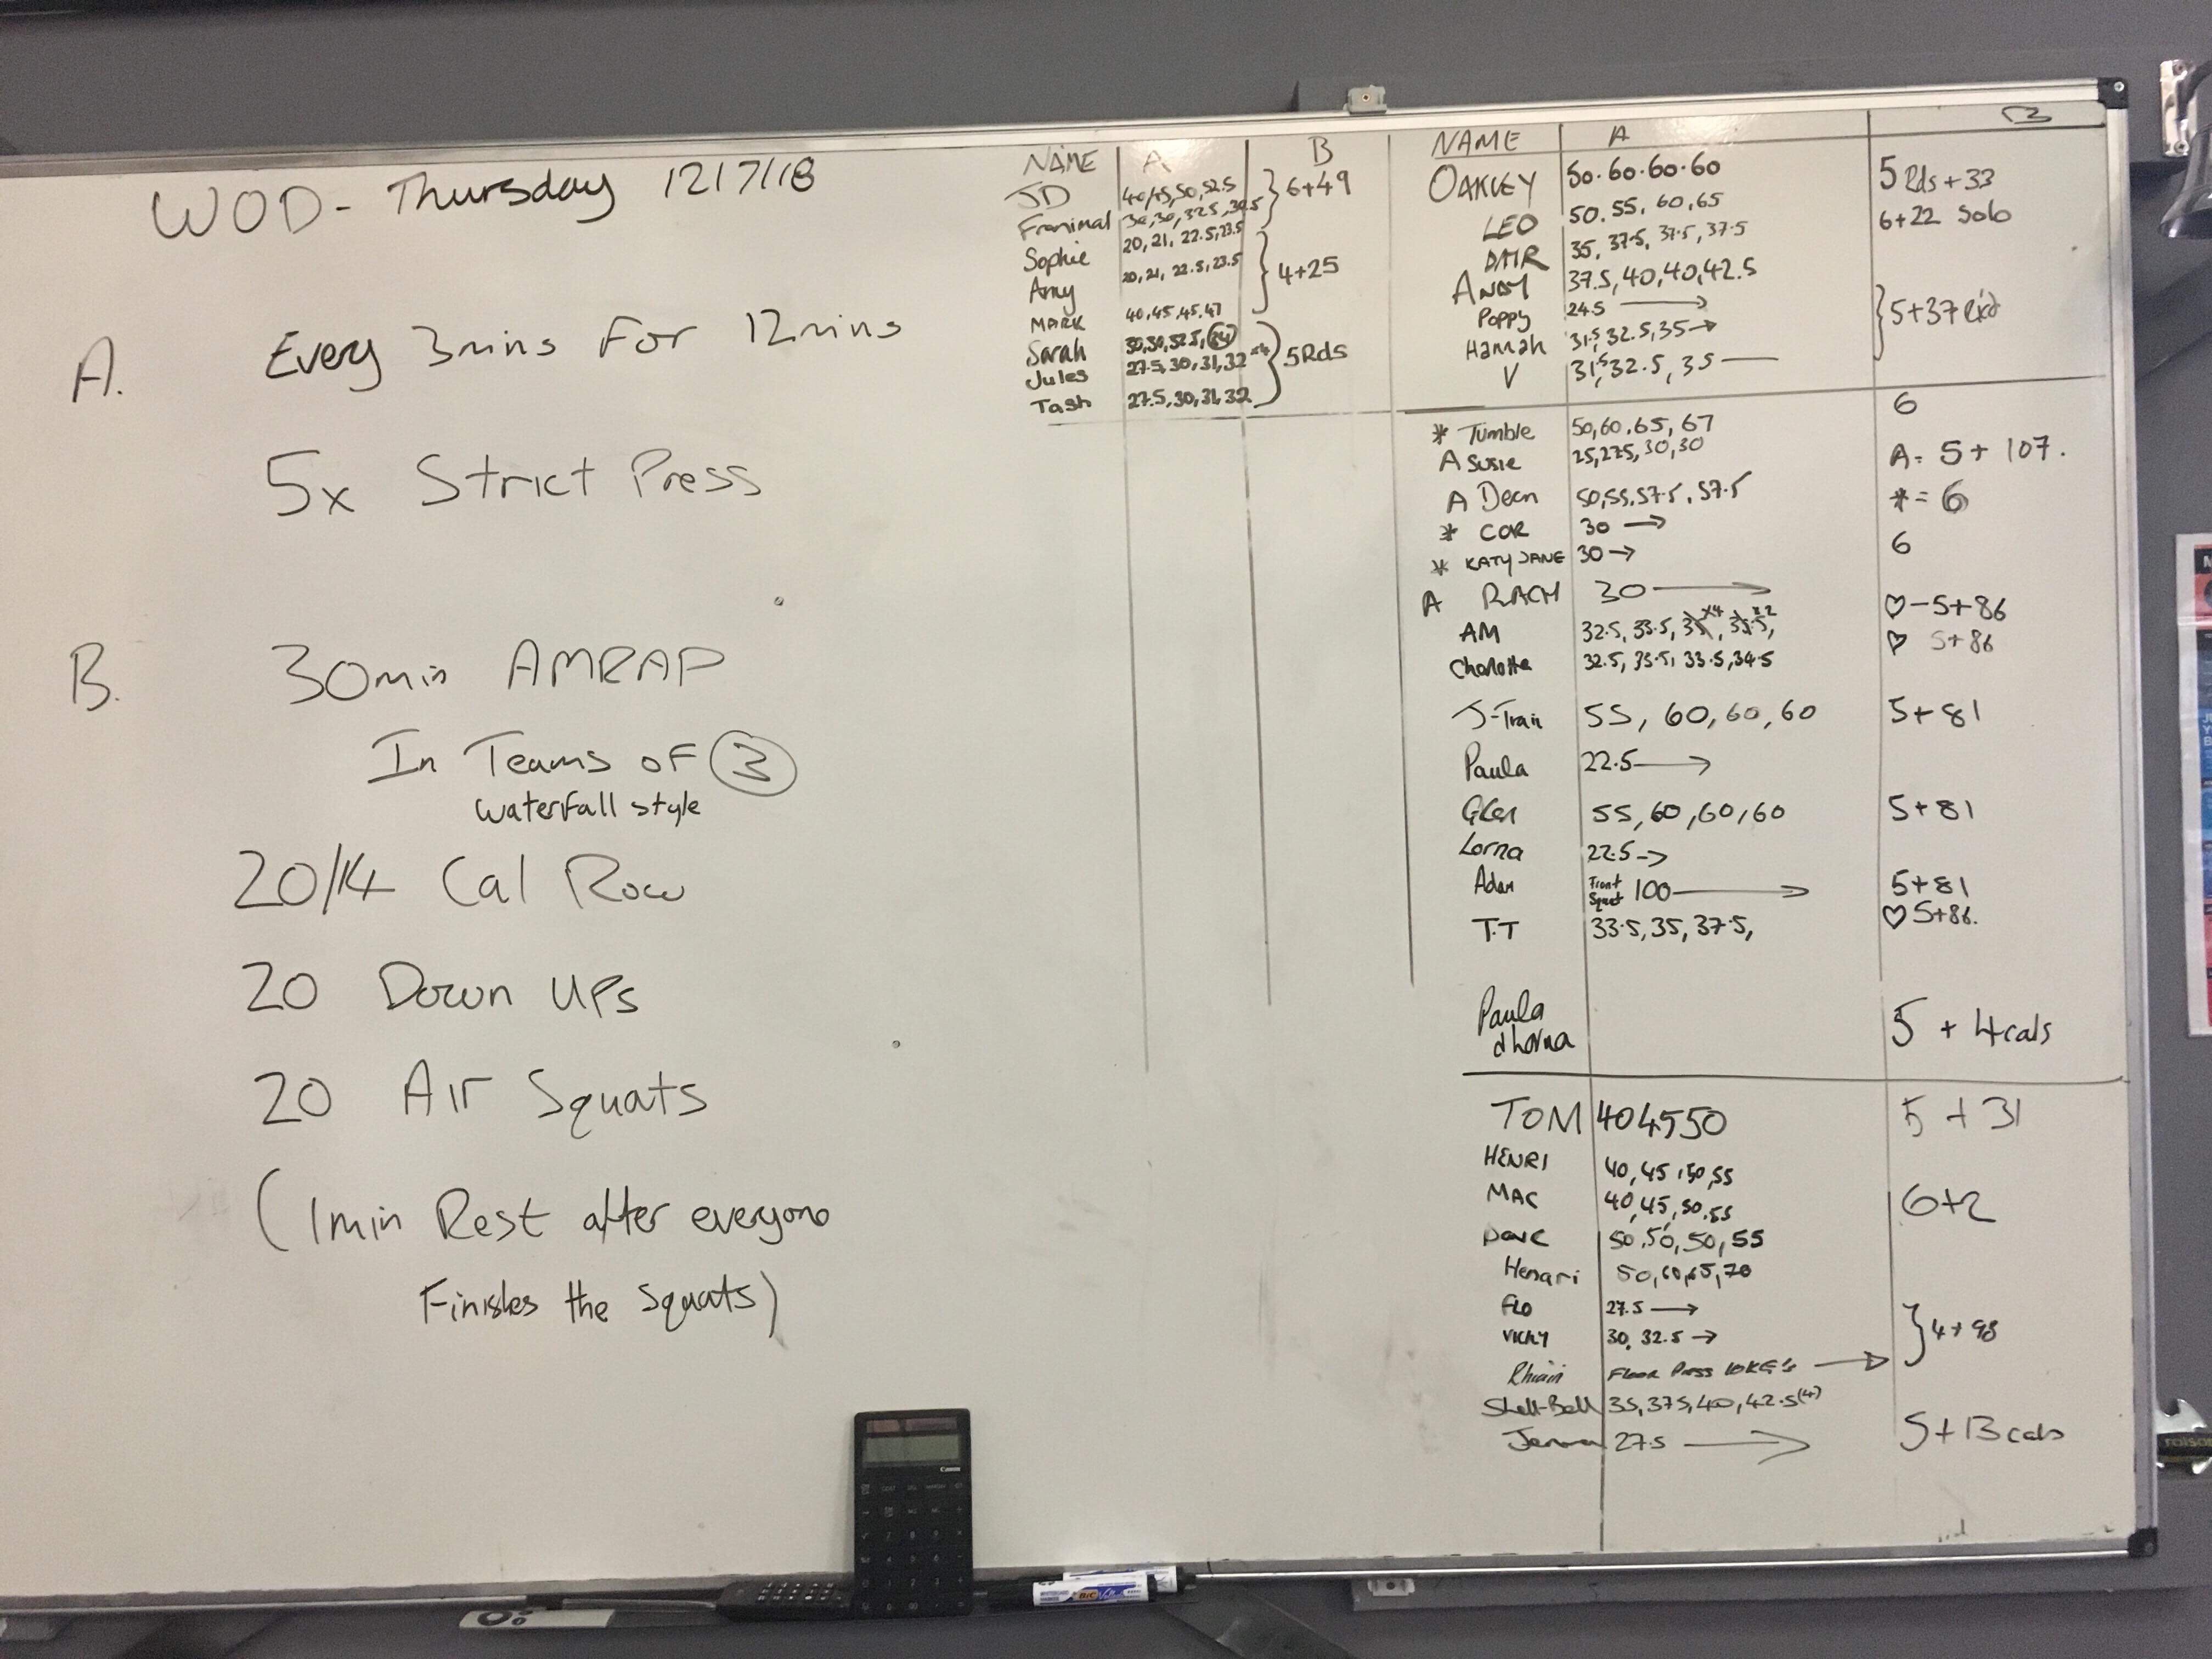 WOD - Thursday 12/7/18
A. Every 3mins For 12mins
5x Strict Press
B. 30min AMRAP
In Teams of 3
Waterfall style
20/14 Cal Row
20 Down Ups
20 Air Squats
(1min Rest after everyone
Finishes the squats)
NAME A B
JD 40,45,50,52.5
Franimal 30,30,32.5,
6+49
Sophie 20,21,22.5,23.5
Amy 20,21,22.5,23.5
MARK 40,45,45,47
4+25
Sarah 30,30,32.5,
Jules 27.5,30,31,32
Tash 27.5,30,31,32
5Rds
NAME A B
OAKLEY 50.60.60.60 5 Rds + 33
LEO 50.55, 60,65 6+22 Solo
DMR 35, 37.5, 37.5, 37.5
ANDY 37.5,40,40,42.5
Poppy 24.5 →
Hannah 31.5,32.5,35→
V 31.5,32.5,35
5+37
* Tumble 50,60,65,67 6
A Susie 25,27.5,30,30 A = 5 + 107.
A Dean 50,55,57.5,57.5 * = 6
* COR 30 → 6
* KATY JANE 30→
A RACH 30 → ♡-5+86
AM 32.5, 33.5, 35 x4, 35.5 x2, ♡ 5+86
Charlotte 32.5, 33.5, 33.5,34.5
J-Train 55, 60,60,60 5+81
Paula 22.5→
Glen 55,60,60,60 5+81
Lorna 22.5→
Adam Front Squat 100→ 5+81
T.T 33.5,35,37.5, ♡5+86.
Paula
& Lorna 5 + 4cals
TOM 40 45 50 5 + 31
HENRI 40,45,50,55
MAC 40,45,50,55 6+2
Dave 50,50,50,55
Henari 50,60,65,70
FLO 27.5→
VICKY 30,32.5→ 4+98
Rhiain Floor Press 10KG's →
Shell-Bell 35,37.5,40,42.5(4)
Jenna 27.5 → 5+13cals
Canon
BIC